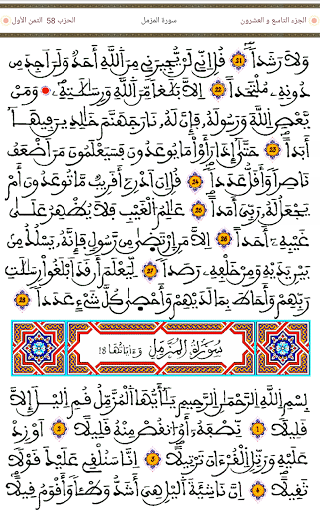 الجزء التاسع و العشرون
سورة المزمل
الحزب 58 الثمن الأول
وَلَا رَشَداً 21 قُلِ اِنِّے لَنْ يُّجِيرَنِے مِنَ اَللَّهِ أَحَدٞ وَلَنَ اَجِدَ مِن
دُونِهِۦ مُلْتَحَداً 22 اِلَّا بَلَٰغاً مِّنَ اَللَّهِ وَرِسَٰلَٰتِهِۦۖ وَمَنْ
يَّعْصِ اِللَّهَ وَرَسُولَهُۥ فَإِنَّ لَهُۥ نَارَ جَهَنَّمَ خَٰلِدِينَ فِيهَآ
أَبَداً 23 حَتَّيٰٓ إِذَا رَأَوْاْ مَا يُوعَدُونَ فَسَيَعْلَمُونَ مَنَ اَضْعَفُ
نَاصِراً وَأَقَلُّ عَدَداً 24 قُلِ اِنَ اَدْرِےٓ أَقَرِيبٞ مَّا تُوعَدُونَ أَمْ
يَجْعَلُ لَهُۥ رَبِّيَ أَمَداً 25 عَٰلِمُ اُلْغَيْبِ فَلَا يُظْهِرُ عَلَيٰ
غَيْبِهِۦٓ أَحَداً 26 اِلَّا مَنِ اِرْتَضَيٰ مِن رَّسُولٖ فَإِنَّهُۥ يَسْلُكُ مِنۢ
بَيْنِ يَدَيْهِ وَمِنْ خَلْفِهِۦ رَصَداً 27 لِّيَعْلَمَ أَن قَدَ اَبْلَغُواْ رِسَٰلَٰتِ
رَبِّهِمْ وَأَحَاطَ بِمَا لَدَيْهِمْ وَأَحْصَيٰ كُلَّ شَےْءٍ عَدَداً 28
سُورَةُ الْمُزَّمِّلِ وَءَايَاتُهَا 18
بِسْمِ اِللَّهِ اِلرَّحْمَٰنِ اِلرَّحِيمِ يَٰٓأَيُّهَا اَلْمُزَّمِّلُ قُمِ اِليْلَ إِلَّا
قَلِيلاً 1 نِّصْفَهُۥٓ أَوُ اُنقُصْ مِنْهُ قَلِيلاً 2 اَوْ زِدْ
عَلَيْهِ وَرَتِّلِ اِلْقُرْءَانَ تَرْتِيلاً 3 اِنَّا سَنُلْقِے عَلَيْكَ قَوْلاٗ
ثَقِيلاً 4 اِنَّ نَاشِئَةَ اَليْلِ هِيَ أَشَدُّ وَطْـٔاٗ وَأَقْوَمُ قِيلاً